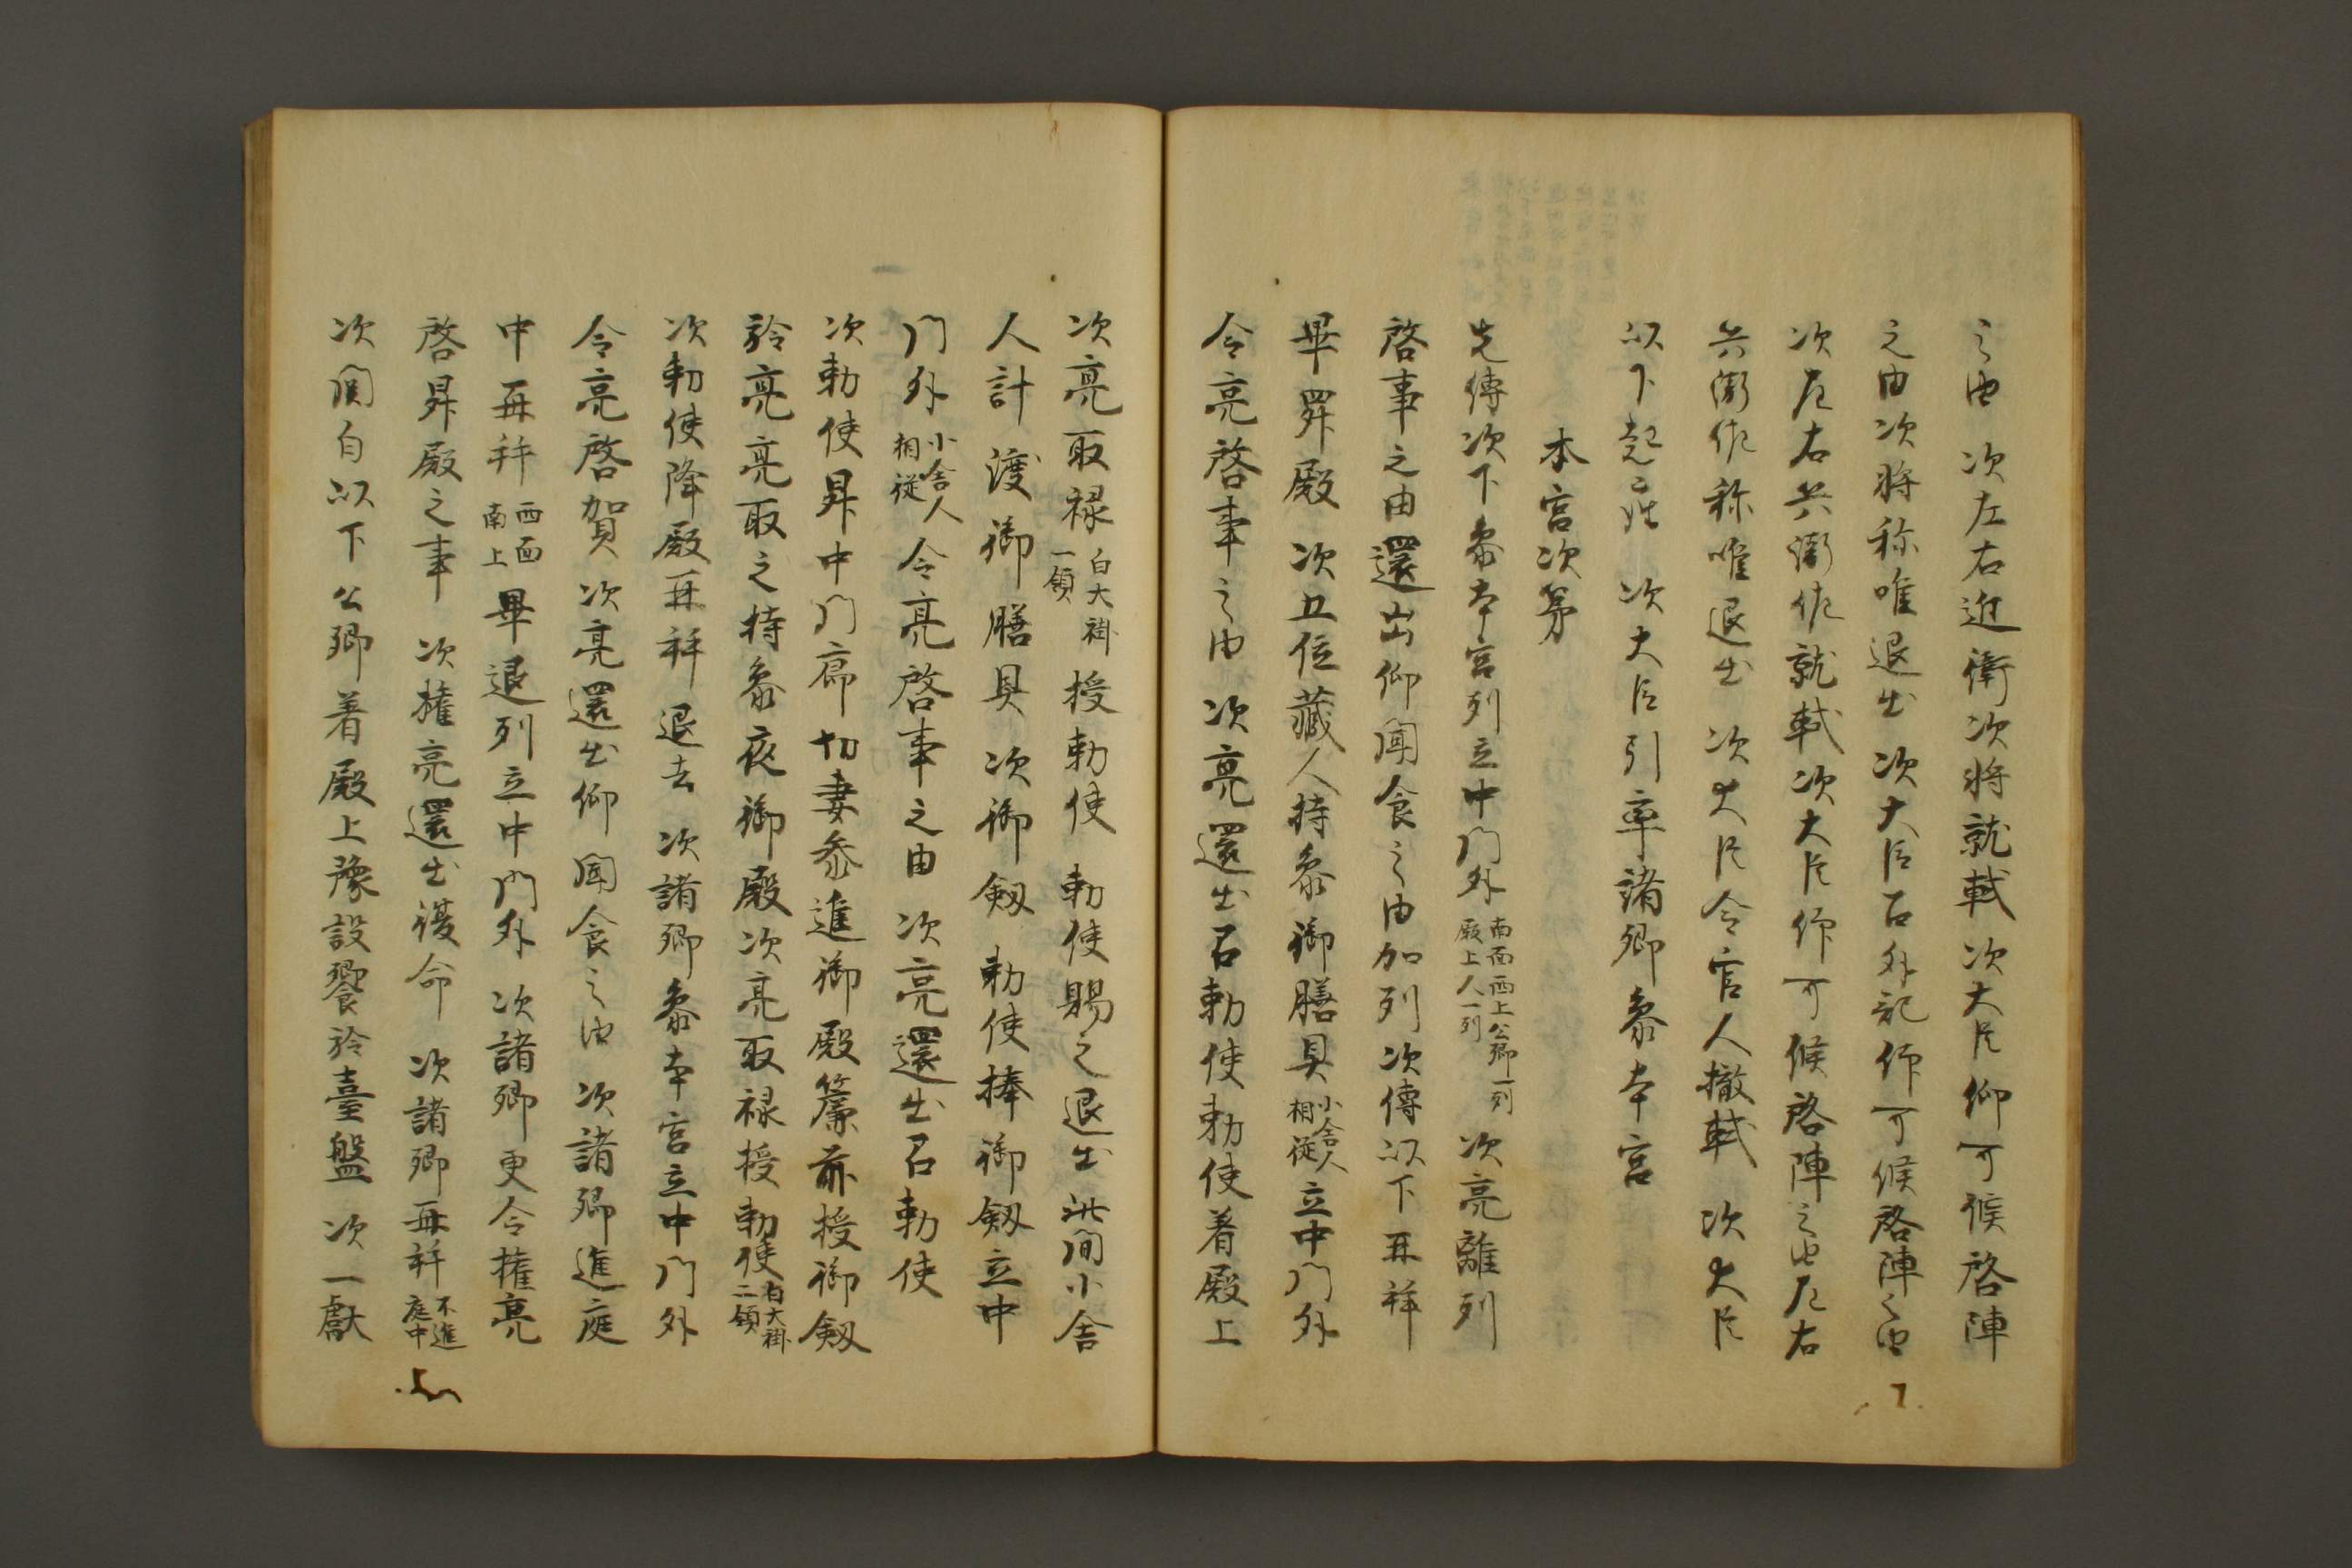 之由 次左右近衛次将就軾 次大臣仰可候啓陣
之由次将称唯退出 次大臣召外記仰可候啓陣之由
次左右兵衛佐就軾次大臣仰可候啓陣之由左右
兵衛佐称唯退出 次大臣令官人撤軾 次大臣
以下起座 次大臣引率諸卿参本宮
本宮次第
先傅次下参本宮列立中門外 南面西上公卿一列殿上人一列 次亮離列
啓事之由還出仰聞食之由加列次傅以下再拝
畢昇殿 次五位蔵人持参御膳具 小舎人相従 立中門外
令亮啓事之由 次亮還出召勅使勅使着殿上
次亮取禄 白大褂一領 授勅使 勅使賜之退出 此間小舎
人計渡御膳具 次御釼 勅使捧御釼立中
門外 小舎人相従 令亮啓事之由 次亮還出召勅使
次勅使昇中門廊切妻参進御殿簾前授御釼
於亮亮取之持参夜御殿次亮取禄授勅使 白大褂二領
次勅使降殿再拝退去 次諸卿参本宮立中門外
令亮啓賀 次亮還出仰聞食之由 次諸卿進庭
中再拝 西面南上 畢退列立中門外 次諸卿更令権亮
啓昇殿之事 次権亮還出復命 次諸卿再拝 不進庭中
次関白以下公卿着殿上豫設饗於臺盤 次一獻